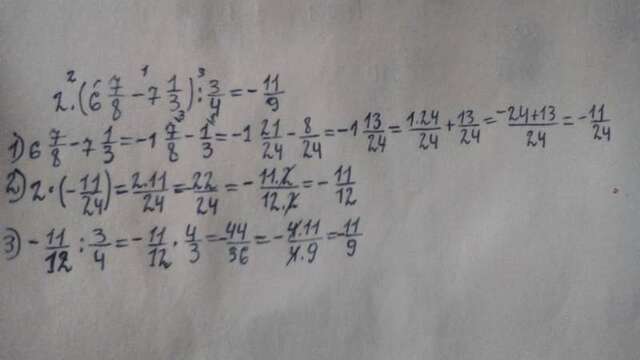 2·(6 7/8 − 7 1/3) : 3/4 = − 11/9
1) 6 7/8 − 7 1/3 = −1 7/8 − 1/3 = −1 21/24 − 8/24 = −1 13/24 = 1·24/24 + 13/24 = −24+13/24 = − 11/24
2) 2·(− 11/24) = 2·11/24 = 22/24 = − 11·2/12·2 = − 11/12
3) − 11/12 : 3/4 = − 11/12 · 4/3 = − 44/36 = − 4·11/4·9 = − 11/9